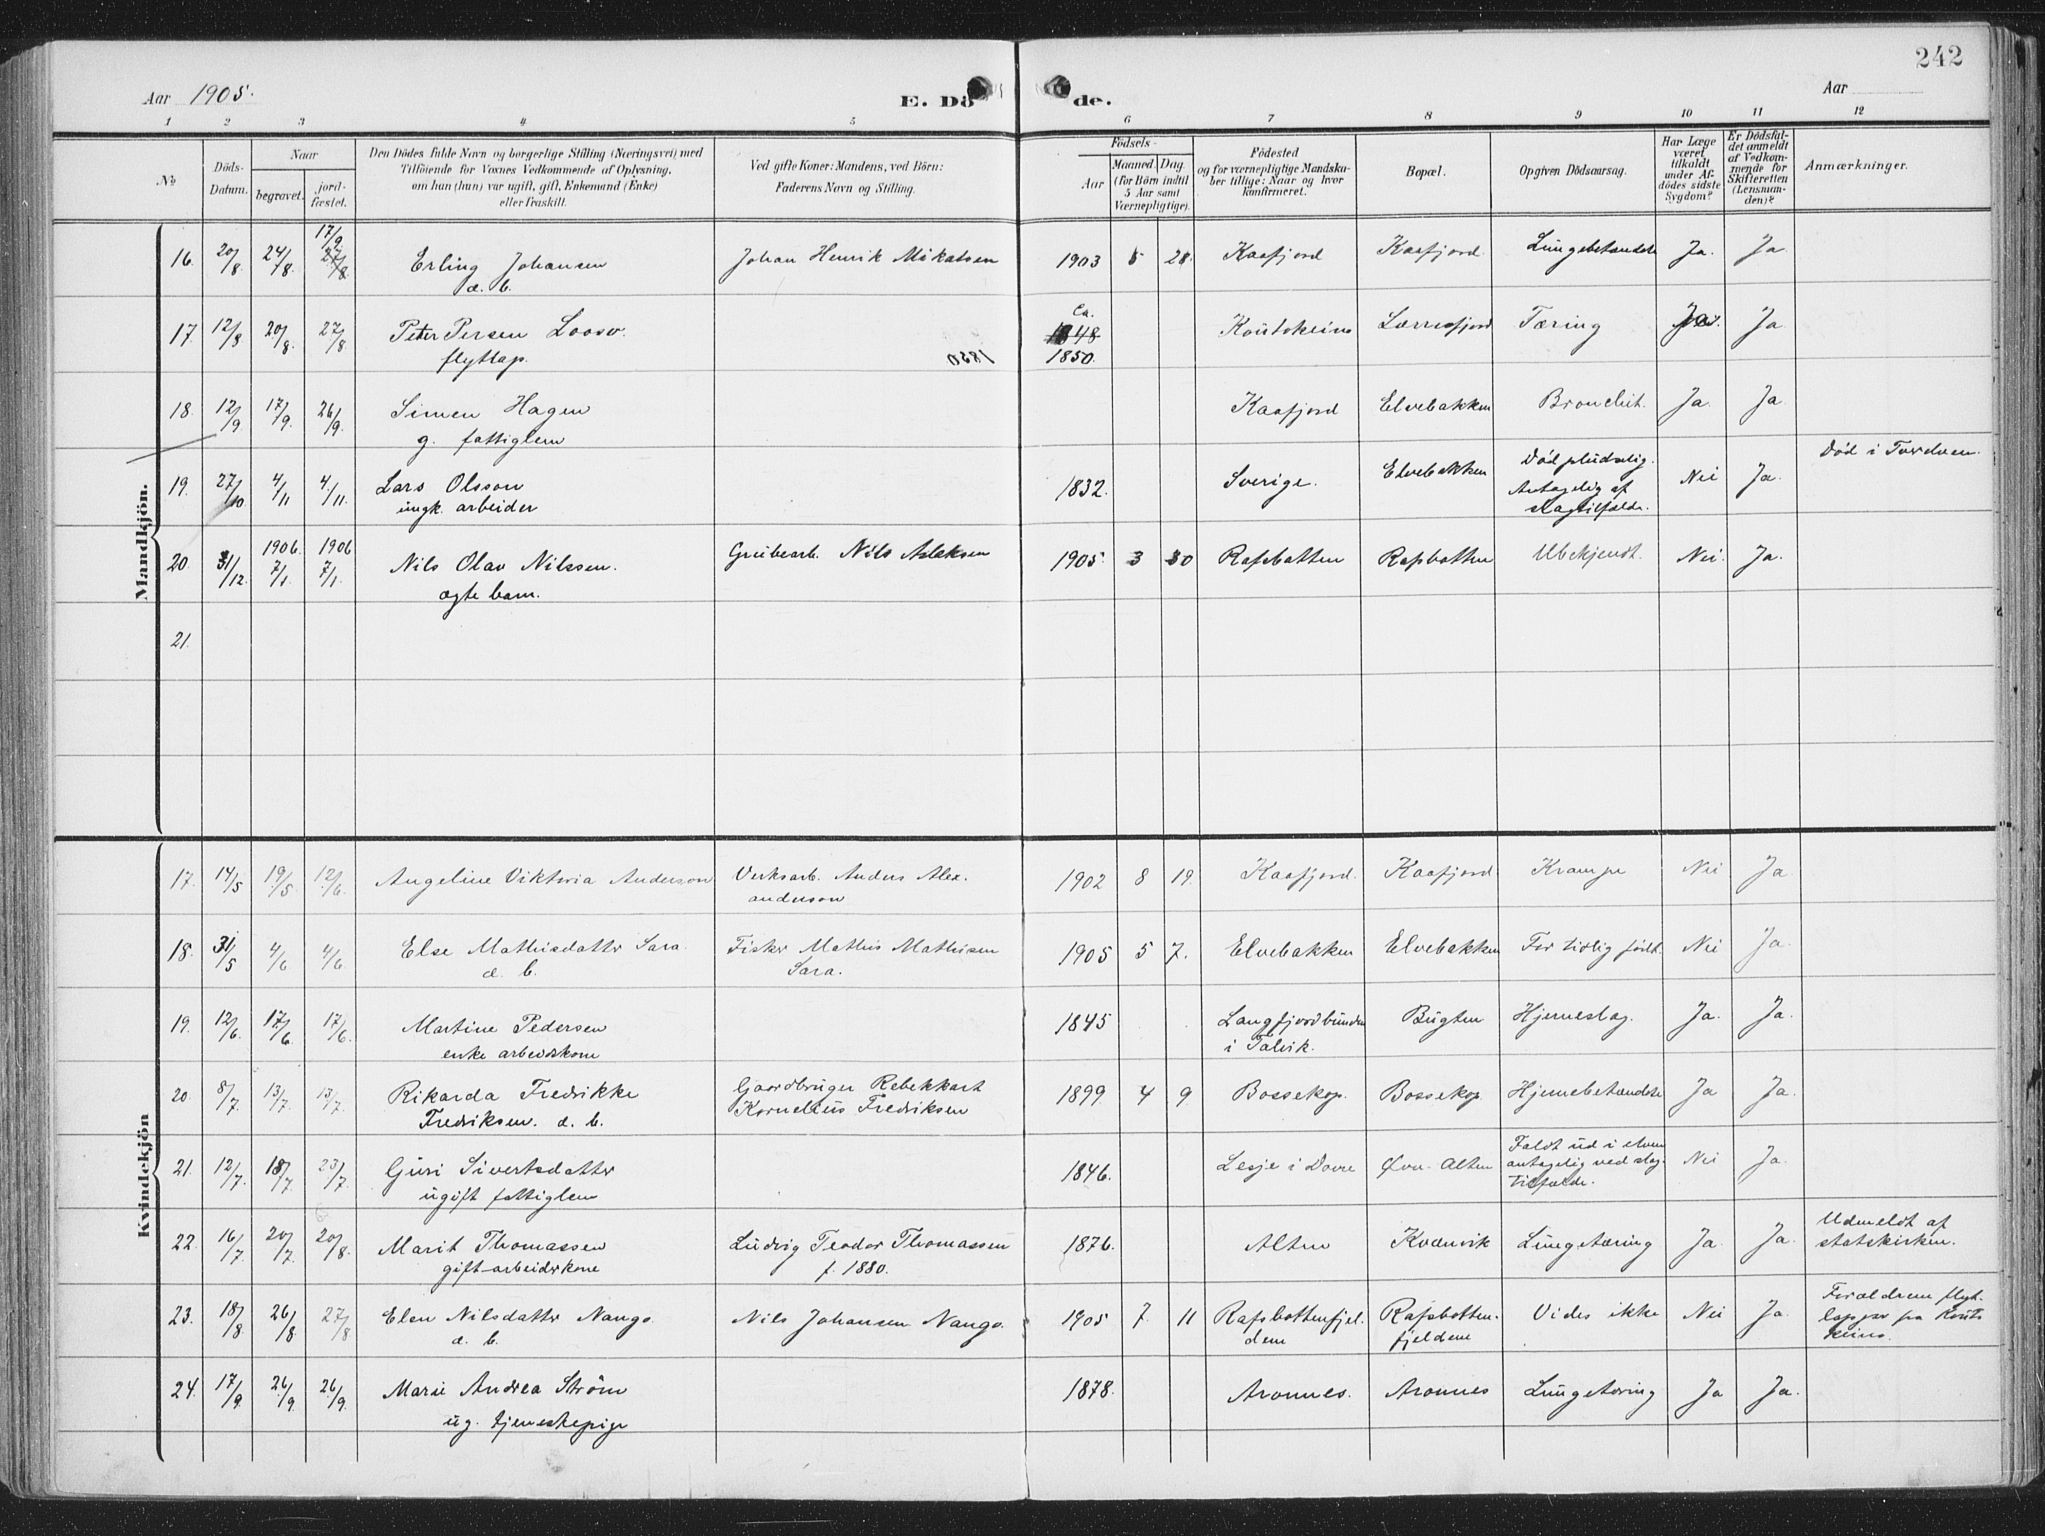 242
Aar 1905. E. Dö de. Aar
1 2 3 4 5 6 7 8 9 10 11 12
No
Döds-Datum.
Naar
begravet.
jord-fæstet.
Den Dödes fulde Navn og borgerlige Stilling (Næringsvei) med
Tilföiende for Voxnes Vedkommende af Oplysning,
om hun (hun) var ugift, gift, Enkemand (Enke)
eller fraskilt.
Ved gifte Koner: Mandens, ved Börn:
Faderens Navn og Stilling.
Födsels-
Aar
Maaned. Dag.
(for Börn indtil
5 Aar samt
Værnepligtige).
Födested
og for værnepligtige Mandska-
ber tillige: Naar og hvor
konfirmeret.
Bopæl.
Opgiven Dödsaarsag.
Har Læge
været
tilkaldt
under Af-
dödes sidste
Sygdom?
Er Dödsfal-
det anmeldt
af Vedkom-
mende for
Skifteretten
(Lensman-
den)?
Anmærkninger.
Mandkjön.
16. 20/8 24/8 17/9 27/8 Erling Johansen Johan Henrik Mikalsen 1903 5 28. Kaafjord Kaafjord Lungebetændelse Ja. Ja
æ. b.
17. 12/8 20/8 27/8 Peter Persen Loosv. Ca. 1848 Koutokeino Lerresfjord Tæring Ja
flyttap. 1850 1850.
18. 12/9 17/9. 26/9. Simen Hagen Kaafjord Elvebakken Bronchit. Ja. Ja
g. fattiglem
19. 27/10 4/11 4/11. Lars Olsson 1832. Sverige. Elvebakken Död pludselig. Nei Ja. Död i Tverelven.
ungk. arbeider Antagelig af
slagtilfælde.
20. 31/12. 1906. 7/1. 1906 7/1. Nils Olav Nilssen. Grubearb. Nils Aslaksen 1905. 3 30 Rafsbotten Rafsbotten Ubekjendt. Nei. Ja.
ægte barn.
21.
Kvindekjön
17. 14/5 19/5 12/6. Angeline Viktoria Anderson Verksarb. Anders Alex. 1902 8 19. Kaafjord. Kaafjord. Krampe Nei Ja
anderson
18. 31/5 4/6 4/6 Else Mathisdatter Sara. Fisker Mathis Mathisen 1905 5 7. Elvebakken Elvebakken For tidlig födt. Nei Ja.
æ. b. Sara.
19. 12/6. 17/6 17/6. Martine Pedersen 1845 Langfjordbunden Bugten Hjerneslag. Ja. Ja.
enke arbeidskone i Talvik.
20 8/7 13/7 13/7 Rikarda Fredrikke Gaardbruger Rebekkart 1899 4 9. Bossekop. Bossekop Hjernebetændelse Ja Ja.
Fredriksen. æ. b. Kornelius Fredriksen
21. 12/7. 18/7 23/7. Guri Sivertsdatter 1846. Lesje i Dovre Övre Alten Faldt ud i elven Nei Ja.
ugift fattiglem antagelig ved slag-
tilfælde.
22. 16/7 20/7 20/8. Marit Thomassen Ludvig Teodor Thomassen 1876. Alten Kvænvik Lungetæring Ja. Ja. Udmeldt af
gift arbeiderkone f. 1880. statskirken.
23. 18/8 26/8. 27/8 Elen Nilsdatter Nango. Nils Johansen Nango. 1905 7. 11 Rafsbottenfjel- Rafsbotten- Vides ikke Nei Ja. Forældrene flyt-
æ. b. dene fjeldene lapper fra Kouto
keino.
24. 17/9. 26/9. 26/9. Marie Andrea Ström 1878. Aronnes. Aronnes Lungetæring Ja Ja.
ug. tjenestepige